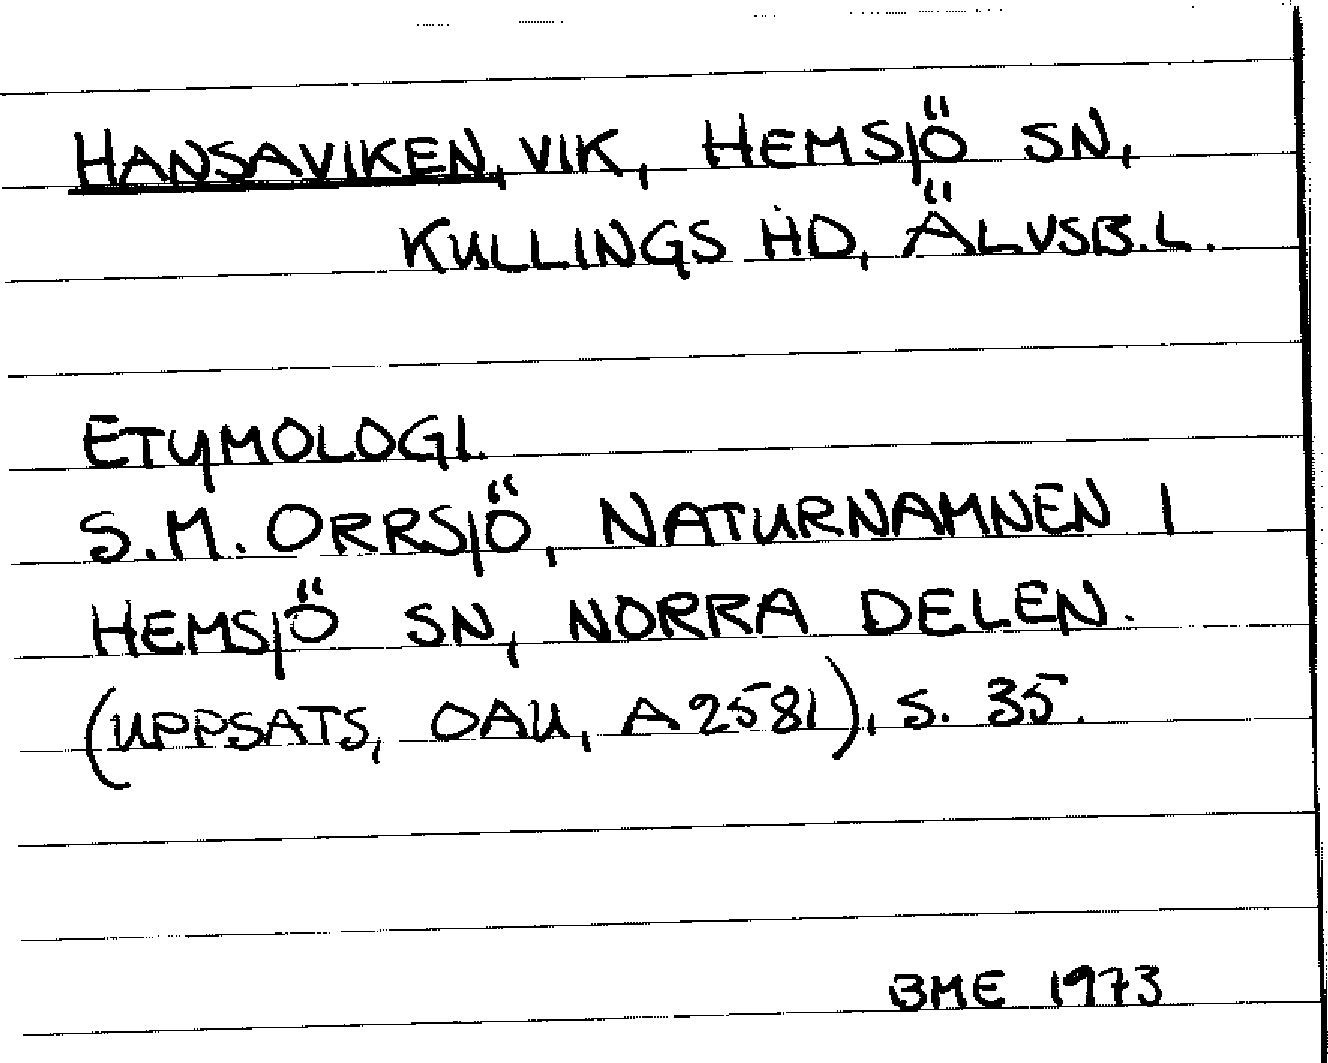 HANSAVIKEN, VIK, HEMSJÖ SN,
KULLINGS HD, ÄLVSB.L.
ETYMOLOGI.
S.M. ORRSJÖ, NATURNAMNEN I
HEMSJÖ SN, NORRA DELEN.
(UPPSATS, OAU, A2581), S. 35.
BME 1973